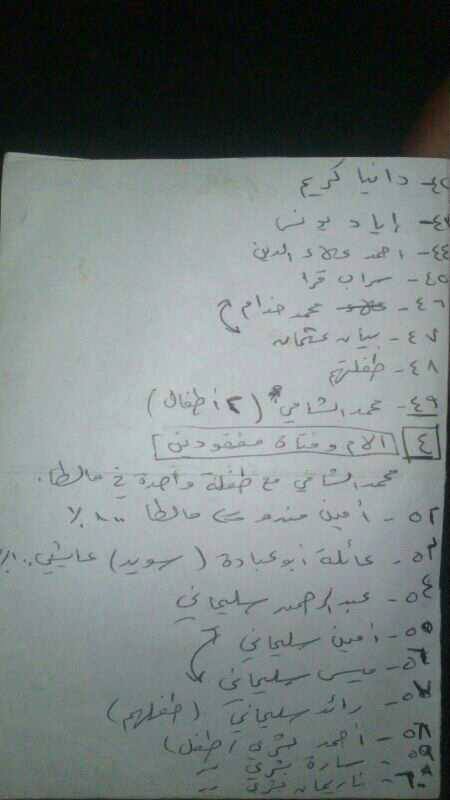 ٤٢- دانيا كريم
٤٣- إياد يونس
٤٤- احمد علاء الدين
٤٥- سراب قرا
٤٦- محمد خدام
٤٧- بيان عثمان
٤٨- طفلتهم
٤٩- محمد الشامي (٢ أطفال)
٤ الام وفتاة مفقودين
محمد الشامي مع طفلة واحدة في مالطا.
٥٢- أمين مندو مالطا
٥٣- عائلة ابو عبادة (سويد) عايشي
٥٤- عبد الرحمن سليماني
٥٥- أمين سليماني
٥٦- ميس سليماني
٥٧- رائد سليماني (طفلهم)
٥٨- أحمد بشرى (طفل)
٥٩- سارة بشرى "
٦٠- ناريمان بشرى "